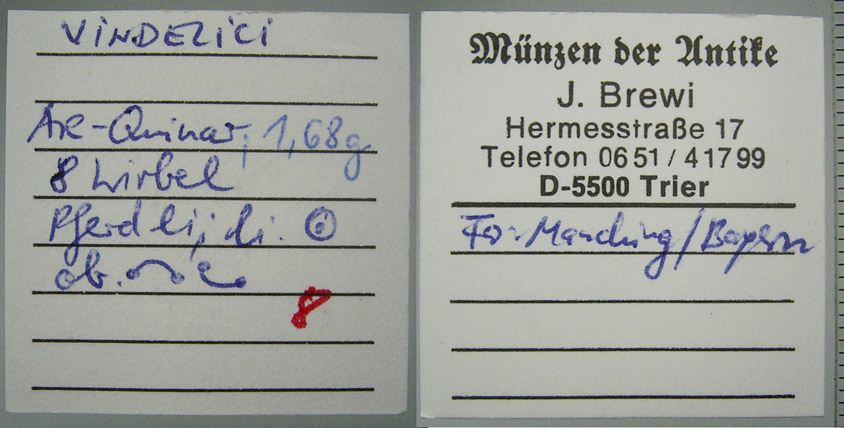 VINDELICI
AR-Quinar, 1,68g
8 Wirbel
Pferd li; li.
ob.
8
Münzen der Antike
J. Brewi
Hermesstraße 17
Telefon 06 51 / 4 17 99
D-5500 Trier
Fo: Manching/Bayern